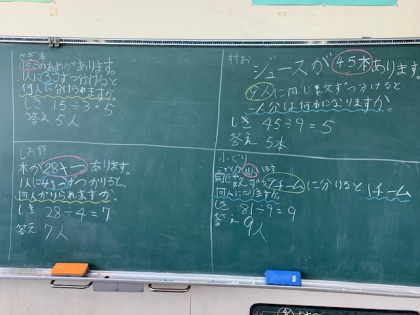 15このあめがあります。
1人に3こずつ分けると
何人に分けられますか。
しき 15÷3=5
答え 5人
村お
ジュースが45本あります。
9人に同じ数ずつ分けると
一人分は何本になりますか。
しき 45÷9=5
答え 5本
しお野
本が28さつあります。
1人に4さつずつくばると、
何人かりられますか。
しき 28÷4=7
答え 7人
小ぐり
9チームに分けると 1チーム
何人になりますか。
しき 81÷9=9
答え 9人